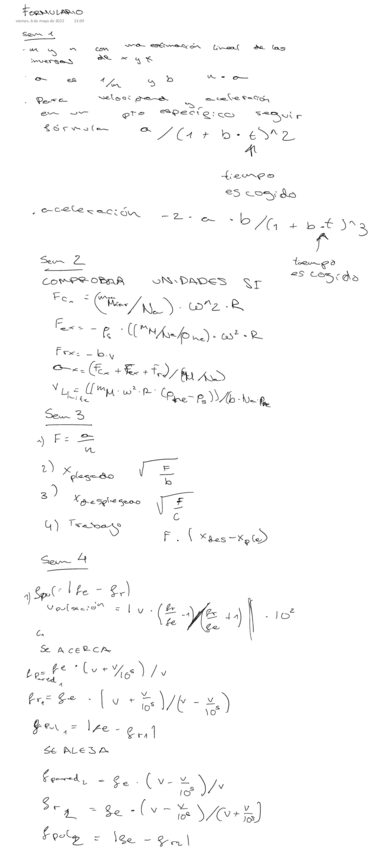 FORMULARIO
viernes, 6 de mayo de 2022 11:09
Sem 1
- m y n con una estimación lineal de las
inversas de x y t
- a es 1/m y b n·a
- Para velocidad y aceleración
en un pto específico seguir
fórmula a/(1 + b · t)^2
tiempo
escogido
- aceleración -2 · a · b/(1 + b·t)^3
tiempo
escogido
Sem 2
COMPROBAR UNIDADES SI
/Na) · ω^2 · R
Fex = -ρs · ((mM/Na/ρne) · ω² · R
Frx = -b·v
ax = (Fcx + Fex + Frx)/(mM/Na)
v Límite = ((mM · ω² · R · (ρne - ρs))/(b · Na · ρne
Sem 3
1) F = a/n
2) x plegado √F/b
3) x desplegado √F/c
4) Trabajo F · (xdes - xple)
Sem 4
1) fpul = |fe - fr|
v pulsación = |v · (fr/fe - 1)/(fr/fe + 1)| · 10²
SE ACERCA
fpared1 = fe · (v + v/10⁶)/v
fr1 = fe · (v + v/10⁶)/(v - v/10⁶)
fpul1 = |fe - fr1|
SE ALEJA
fpared2 = fe · (v - v/10⁶)/v
fr2 = fe · (v - v/10⁶)/(v + v/10⁶)
fpul2 = |fe - fr2|